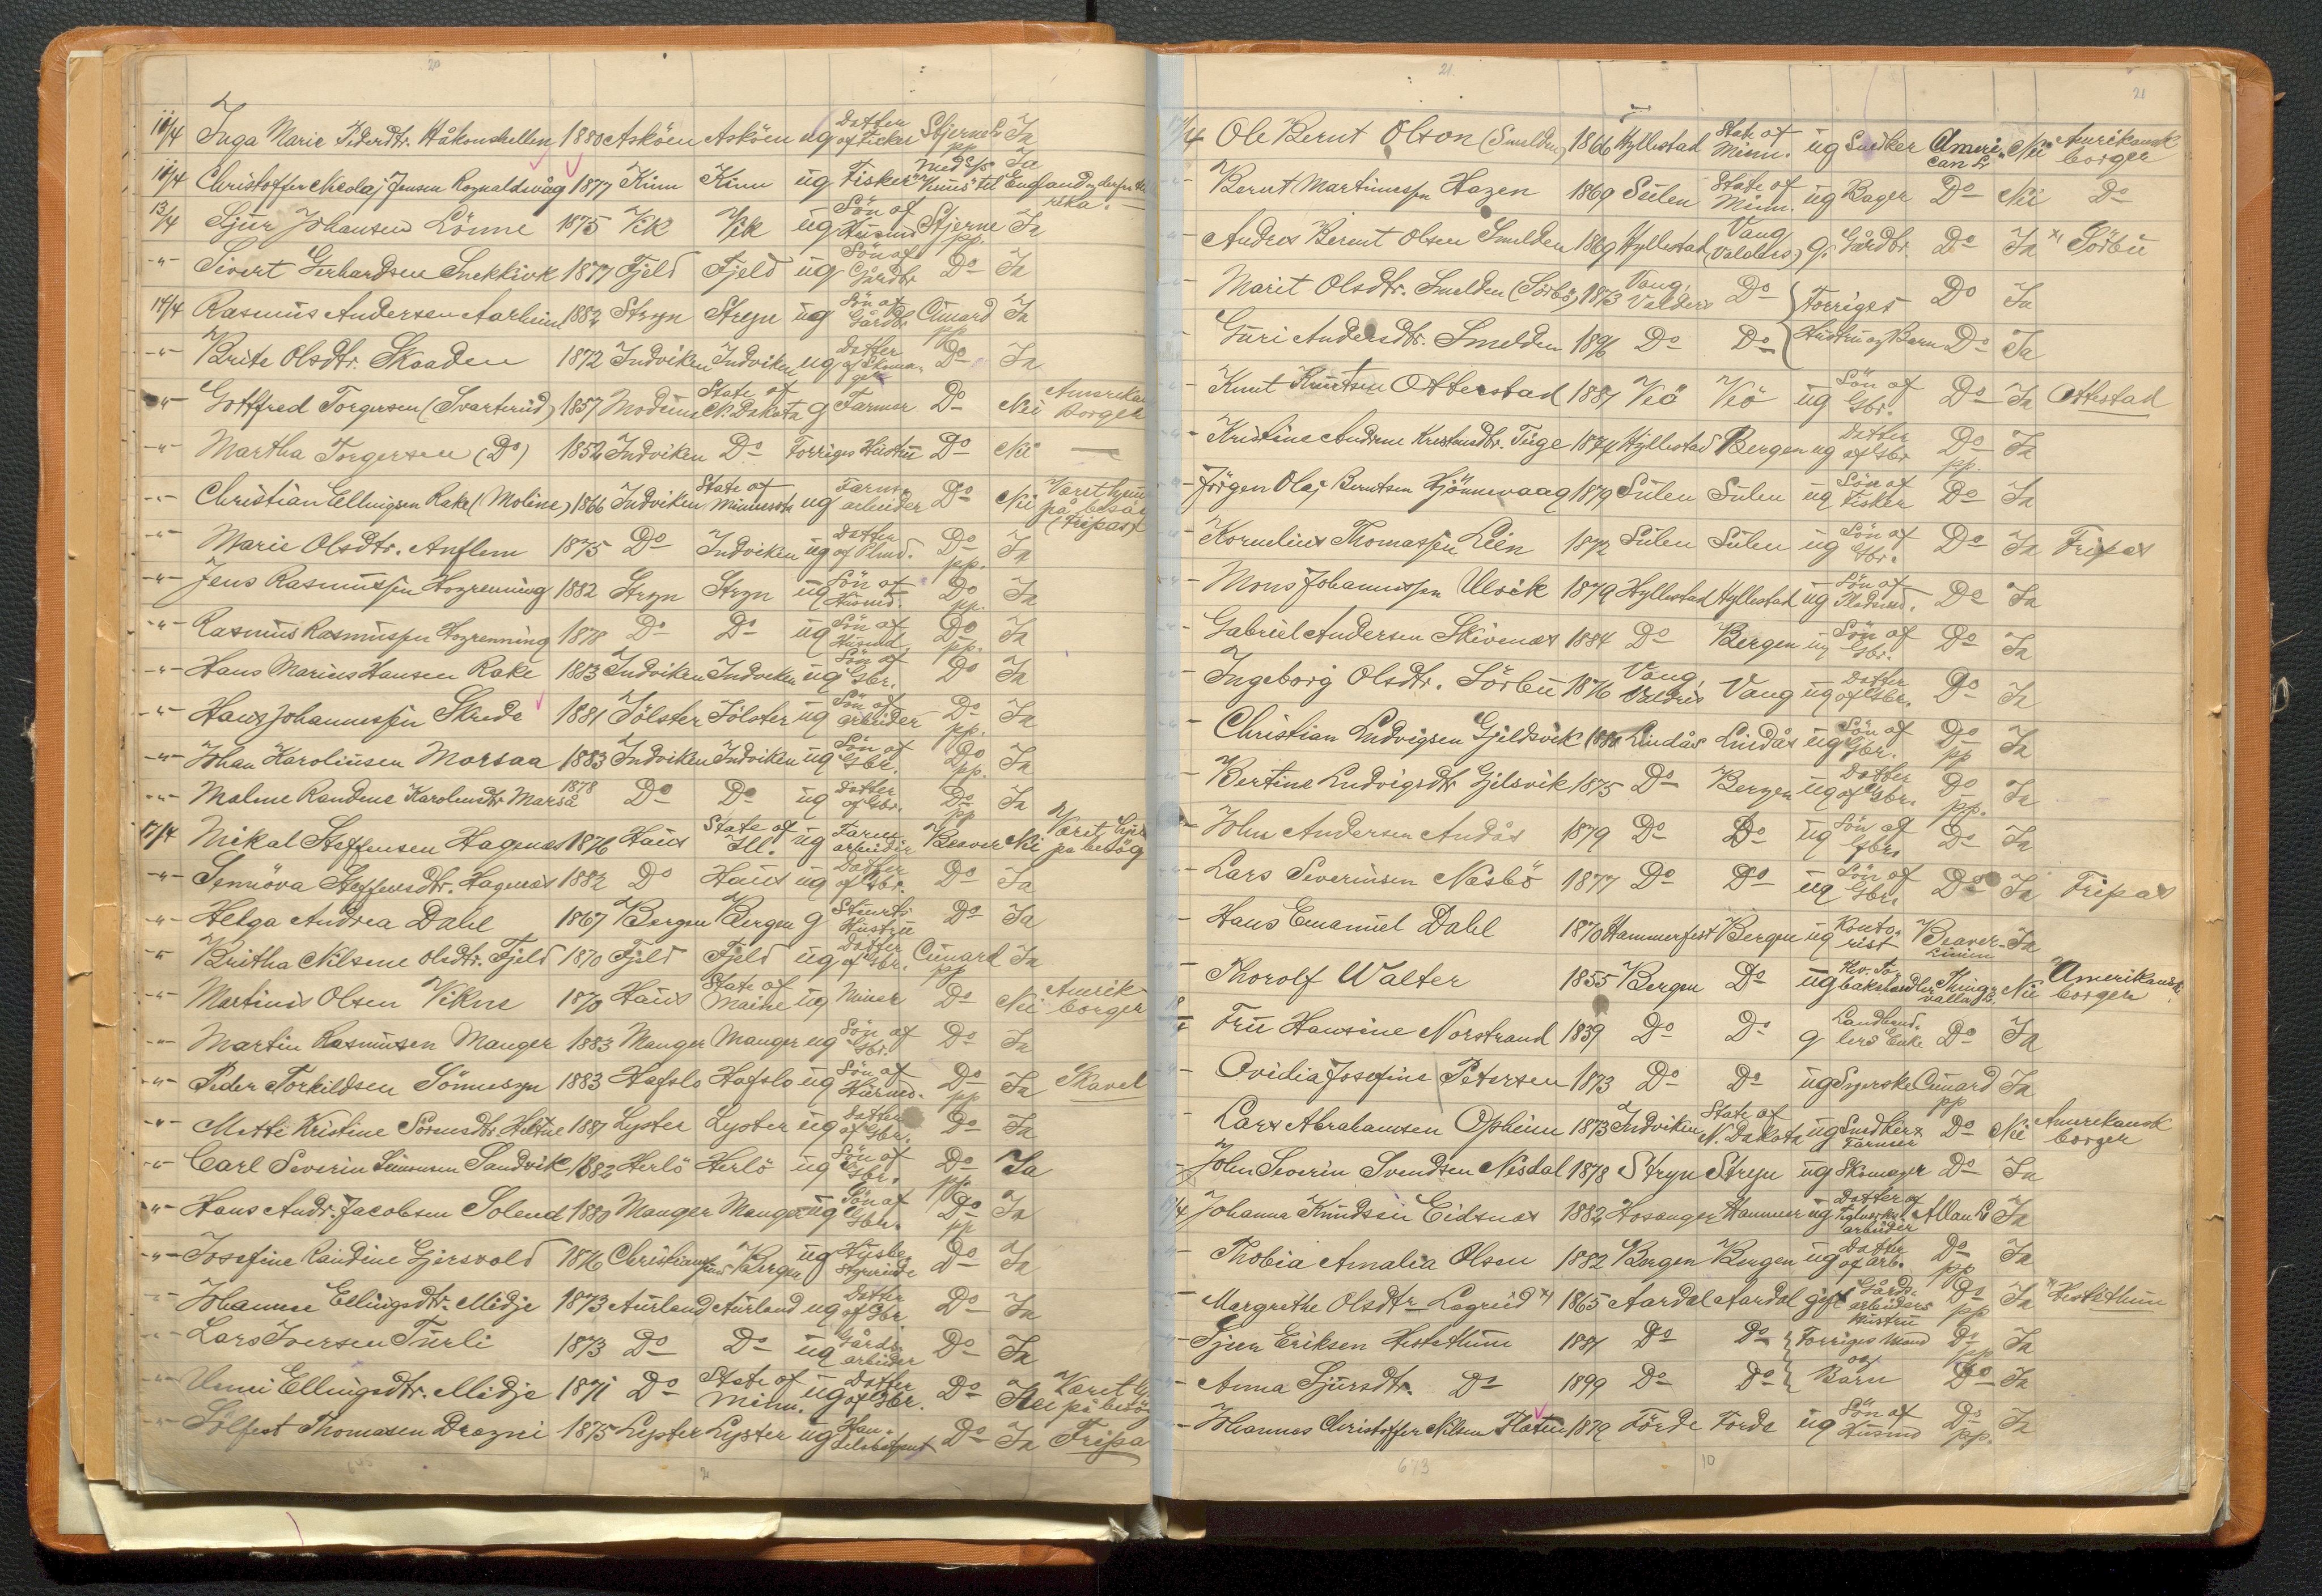 20
11/4 Inga Marie Pedersdtr. Håkonshellen 1880 Asköen Asköen ug Datter af Fisker Stjerne L pp Ja
11/4 Christoffer Nicolaj Jensen Rognaldsvåg 1877 Kinn Kinn ug Fisker Med S/S "Venus" til England og derfra til
13/4 Sjur Johansen Lönne 1875 Vik Vik ug Sön af Husmd Stjerne pp. Ja
-"- Sivert Gerhardsen Snekkevik 1877 Fjeld Fjeld ug Sön af Gårdbr Do Ja
14/4 Rasmus Andersen Aarheim 1882 Stryn Stryn ug Sön af Gårdbr Cunard pp Ja
-"- Brite Olsdtr. Skaaden 1872 Indviken Indviken ug Datter af Skomager Do Ja
-"- Gottfred Torgersen (Svarterud) 1857 Modum State of N. Dakota g Farmer Do Nei Amerikan Borger
-"- Martha Torgersen (Do) 1852 Indviken Do Forriges Hustru Do Nei —
-"- Christian Ellingsen Rake (Moline) 1866 Indviken State of Minnesota ug Farmarbeider Do Nei Været hjem på besög (Fripas)
-"- Marie Olsdtr. Anflem 1875 Do Indviken ug Datter af Plmd. Do pp. Ja
-"- Jens Rasmussen Hogrenning 1882 Stryn Stryn ug Sön af Husmd. Do pp. Ja
-"- Rasmus Rasmussen Hogrenning 1878 Do Do ug Sön af Husmd. Do pp. Ja
-"- Hans Marius Hansen Rake 1883 Indviken Indviken ug Sön af Gbr. Do Ja
-"- Hans Johannessen Skrede 1881 Jölster Jölster ug Sön af arbeider Do pp. Ja
-"- Johan Karolinsen Morsaa 1883 Indviken Indviken ug Sön af Gbr. Do pp. Ja
-"- Malme Randene Karolinsdtr Marså 1878 Do Do ug Datter af Gbr. Do pp Ja
17/4 Mikal Steffensen Hagenæs 1876 Haus State of Ill. ug Farmarbeider Beaver Nei Været hjem på besög
-"- Sennöva Steffensdtr. Hagenæs 1882 Do Haus ug Datter af Gbr. Do Ja
-"- Helga Andrea Dahl 1867 Bergen Bergen g Stuerts Hustru Do Ja
-"- Britha Nilsene Olsdtr. Fjeld 1870 Fjeld Fjeld ug Datter af Gbr. Cunard pp Ja
-"- Martinus Olsen Vikne 1870 Haus State of Maine ug Miner Do Nei Amerik. borger
-"- Martin Rasmussen Manger 1883 Manger Manger ug Sön af Gbr. Do Ja
-"- Peder Torkildsen Sönnesyn 1883 Hafslo Hafslo ug Sön af Husmd. Do pp Ja Skavel
-"- Mette Kristine Sörensdtr. Hestne 1881 Lyster Lyster ug Datter af Gbr. Do Ja
-"- Carl Severin Simonsen Sandvik 1882 Herlö Herlö ug Sön af Gbr. Do pp. Ja
-"- Hans Andr. Jacobsen Solend 1880 Manger Manger ug Sön af Gbr. Do pp Ja
-"- Josefine Randine Gjersvold 1876 Christiansund Bergen ug Husbestyrerinde Do Ja
-"- Johanne Ellingsdtr. Midje 1873 Aurland Aurland ug Datter af Gbr. Do Ja
-"- Lars Iversen Turli 1873 Do Do ug Gårdsarbeider Do Ja
-"- Unni Ellingsdtr. Midje 1871 Do State of Minn. ug Datter af Gbr. Do Nei Været hj. på besög
-"- Sölfest Thomasen Drægni 1875 Lyster Lyster ug Handelsbetjent Do Ja Fripa
21
21
17/4 Ole Bernt Olson (Smelden) 1866 Hyllestad State of Minn. ug Snedker American L. Nei Amerikansk borger
- Bernt Martinussen Hagen 1869 Sulen State of Minn. ug Bager Do Nei Do
- Andres Bernt Olsen Smelden 1869 Hyllestad Vang (Valders) g. Gårdbr. Do Ja x) Sörbu
- Marit Olsdtr. Smelden (Sörbö) 1873 Vang, Valders Do Forriges Do Ja
- Guri Andersdtr. Smelden 1896 Do Do Hustru og Barn Do Ja
- Knut Knutsen Otterstad 1881 Veö Veö ug Sön af Gbr. Do Ja Ottestad
- Kristine Andrene Kristensdtr. Tuge 1874 Hyllestad Bergen ug Datter af Gbr. Do pp. Ja
- Jörgen Olaj Berntsen Hjönnevaag 1879 Sulen Sulen ug Sön af Fisker Do Ja
- Kornelius Thomassen Leen 1872 Sulen Sulen ug Sön af Gbr. Do Ja Fripas
- Mons Johannessen Ulvik 1879 Hyllestad Hyllestad ug Sön af Pladsmd. Do Ja
- Gabriel Andersen Skivenæs 1884 Do Bergen ug Sön af Gbr. Do Ja
- Ingeborg Olsdtr. Sörbu 1876 Vang, Valdris Vang ug Datter af Gbr. Do Ja
- Christian Ludvigsen Gjeldsvik 1880 Lindås Lindås ug Sön af Gbr. Do pp Ja
- Bertine Ludvigsdtr Gjelsvik 1875 Do Bergen ug Datter af Gbr. Do pp. Ja
- John Andersen Andås 1879 Do Do ug Sön af Gbr. Do Ja
- Lars Severinsen Næsbö 1877 Do Do ug Sön af Gbr. Do Ja Fripas
- Hans Emanuel Dahl 1870 Hammerfest Bergen ug Kontorist Beaver Linien Ja
- Thorolf Walter 1855 Bergen Do ug Fhv. Tobakshandler Thingvalla L. Nei Amerikansk borger
18/4 Fru Hansine Norstrand 1839 Do Do g Landhandlers Enke Do Ja
- Ovidia Josefine Petersen 1873 Do Do ug Syerske Cunard pp Ja
- Lars Abrahamsen Opheim 1873 Indviken State of N. Dakota ug Snedker & Farmer Do Nei Amerikansk borger
- John Severin Svendsen Nesdal 1878 Stryn Stryn ug Skomager Do Ja
19/4 Johanna Knudsen Eidsnæs 1882 Hosanger Hammer ug Datter af Teglverksarbeider Allan L Ja
- Thobia Amalia Olsen 1882 Bergen Bergen ug Datter af arb. Do pp Ja
- Margrethe Olsdtr Lagreid x) 1865 Aardal Aardal gift Gårdsarbeiders Hustru Do pp Ja x) Hestethun
- Sjur Eriksen Hestethun 1851 Do Do Forriges Mand Do pp Ja
- Anna Sjursdtr. Do 1899 Do Do og Barn Do Ja
- Johannes Christoffer Nilsen Flaten 1879 Förde Förde ug Sön af Husmd Do pp. Ja
673
10